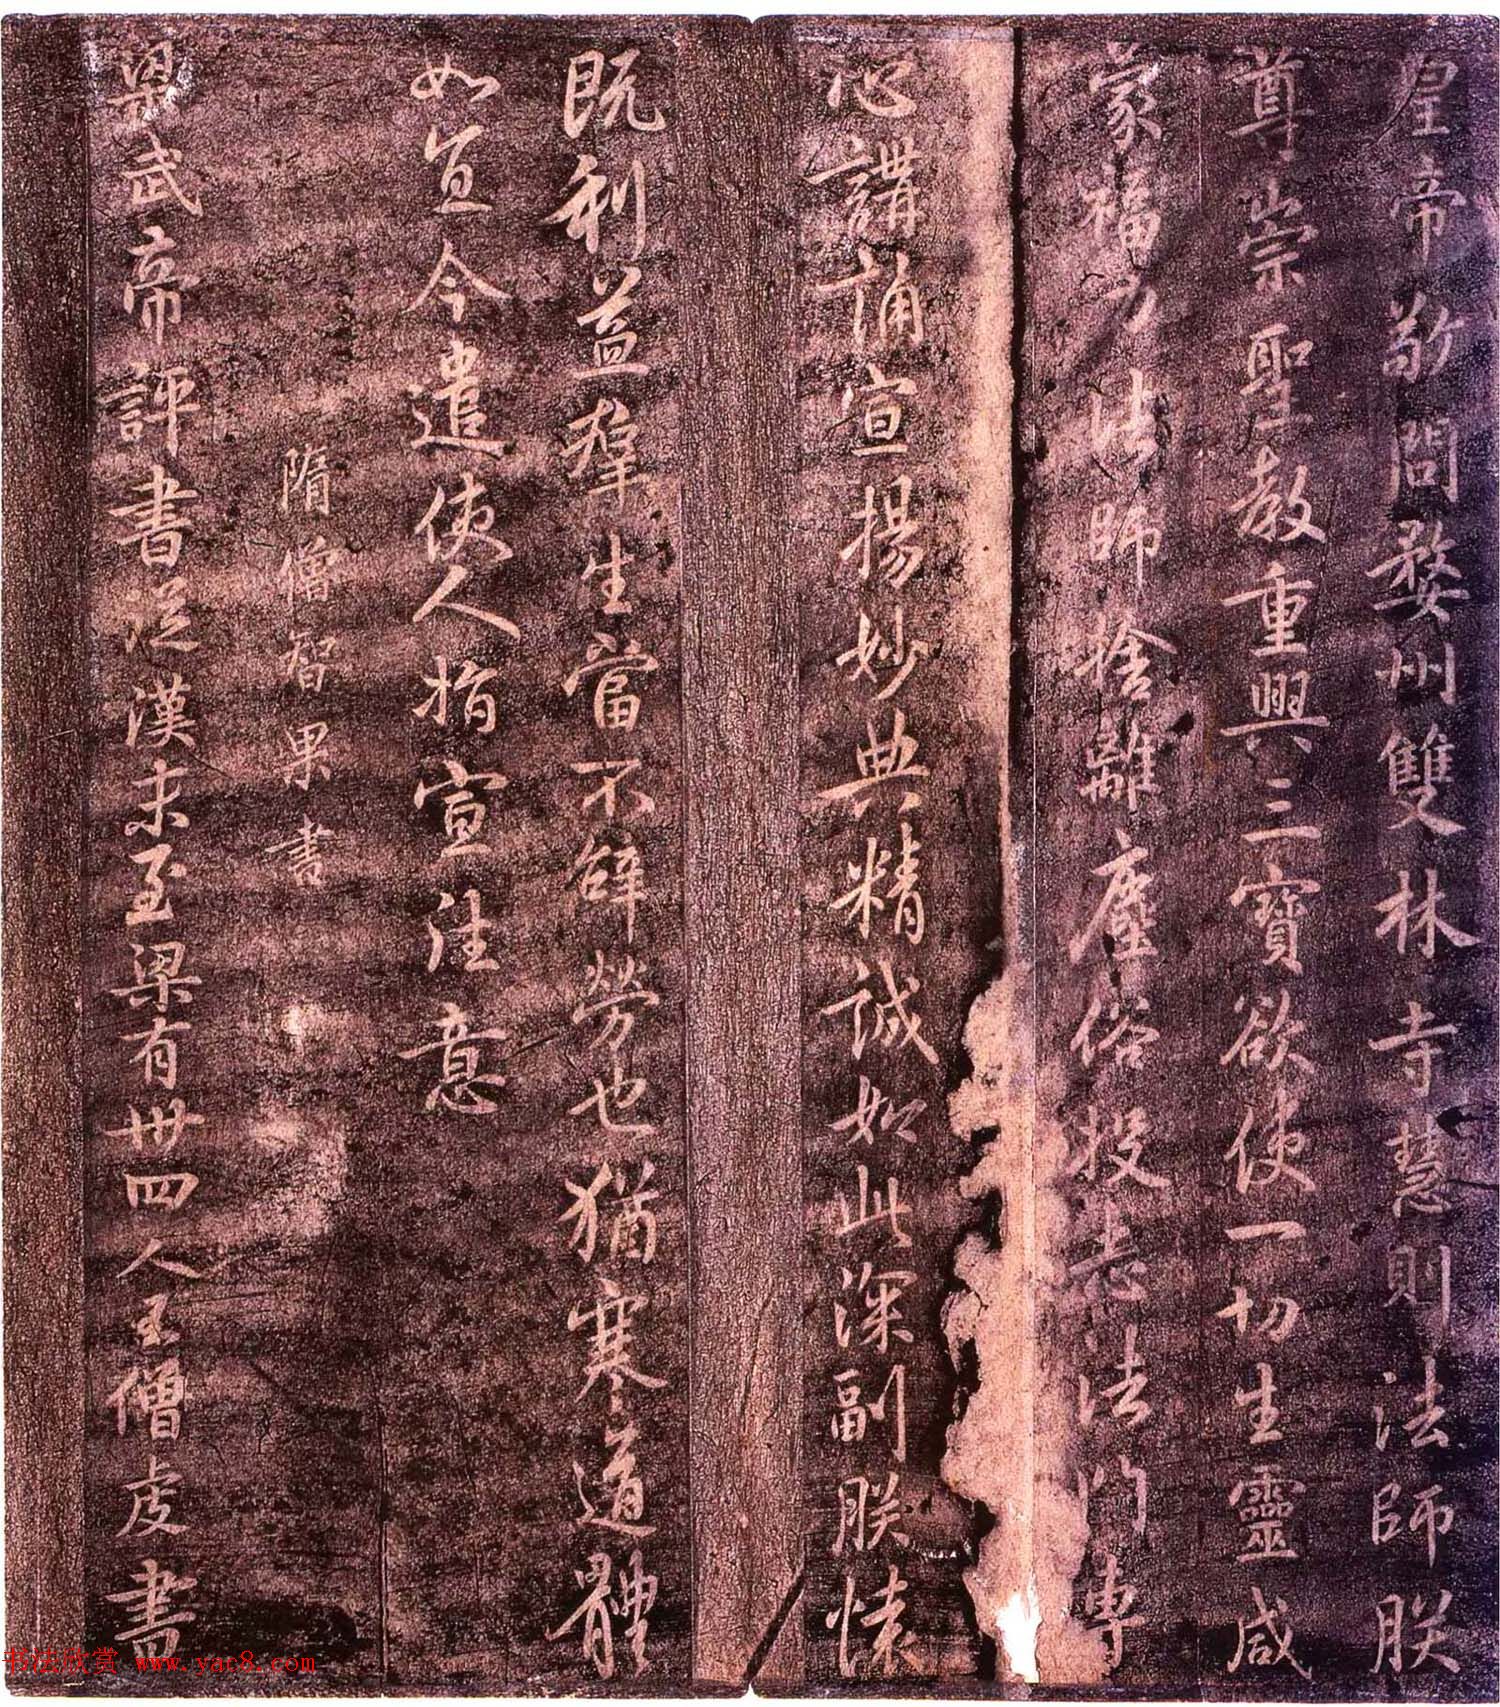 皇帝敬問婺州雙林寺慧則法師朕
尊崇聖教重興三寶欲使一切生靈咸
蒙福力法師捨離塵俗投志法門專
心講誦宣揚妙典精誠如此深副朕懷
既利益群生當不辭勞也猶寒道體
如宜今遣使人指宣往意
隋僧智果書
梁武帝評書從漢末至梁有卅四人王僧虔書
书法欣赏 www.yac8.com